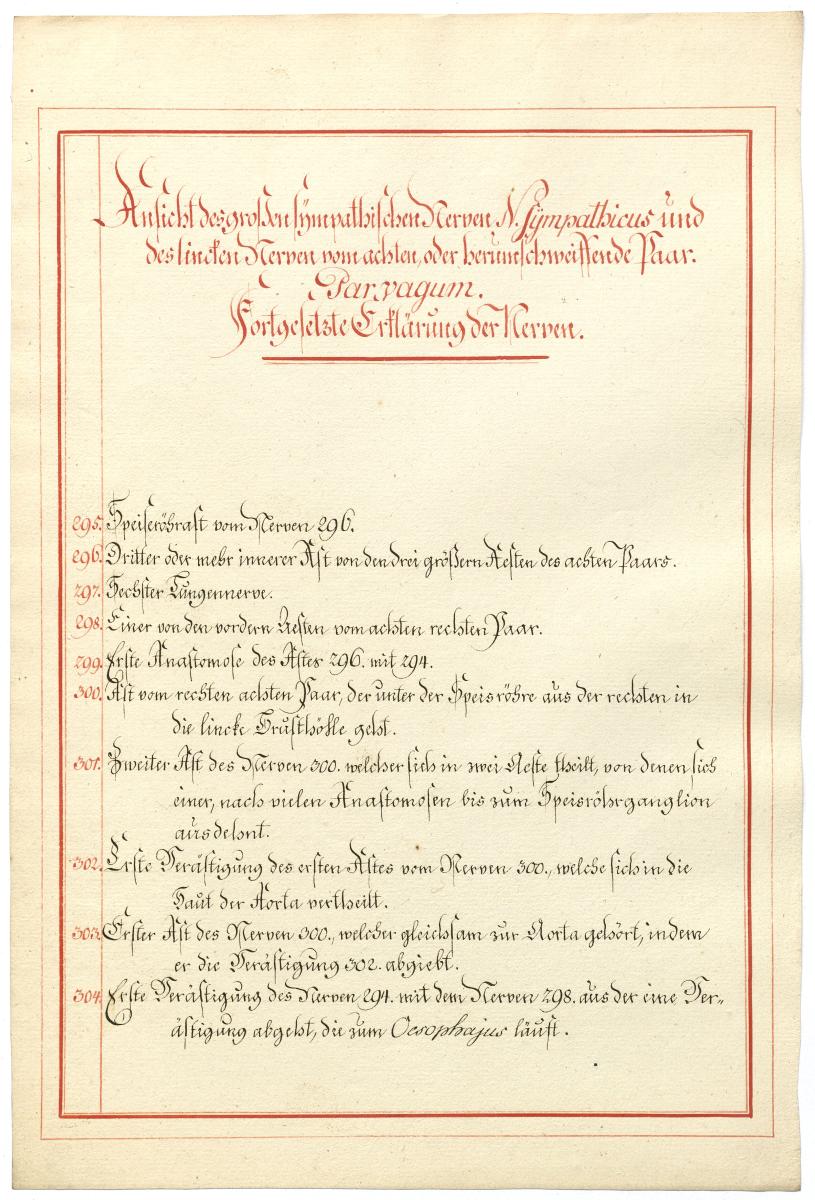 Ansicht des großen sympathischen Nerven N. Sÿmpathicus und
des lincken Nerven vom achten, oder herumschweiffende Paar.
Par vagum.
Fortgesetzte Erklärung der Nerven.
295. Speiseröhrast vom Nerven 296.
296. Dritter oder mehr innerer Ast von den drei größern Aesten des achten Paars.
297. Sechster Lungennerve.
298. Einer von den vordern Aesten vom achten rechten Paar.
299. Erste Anastomose des Astes 296. mit 294.
300. Ast vom rechten achten Paar, der unter der Speisröhre aus der rechten in
die lincke Brusthöhle geht.
301. Zweiter Ast des Nerven 300. welcher sich in zwei Aeste theilt, von denen sich
einer, nach vielen Anastomosen bis zum Speisröhrganglion
ausdehnt.
302. Erste Verästigung des ersten Astes vom Nerven 300., welche sich in die
Haut der Aorta vertheilt.
303. Erster Ast des Nerven 300., welcher gleichsam zur Aorta gehört, indem
er die Verästigung 302. abgiebt.
304. Erste Verästigung des Nerven 294. mit dem Nerven 298. aus der eine Ver-
ästigung abgeht, die zum Oesophajus läuft.